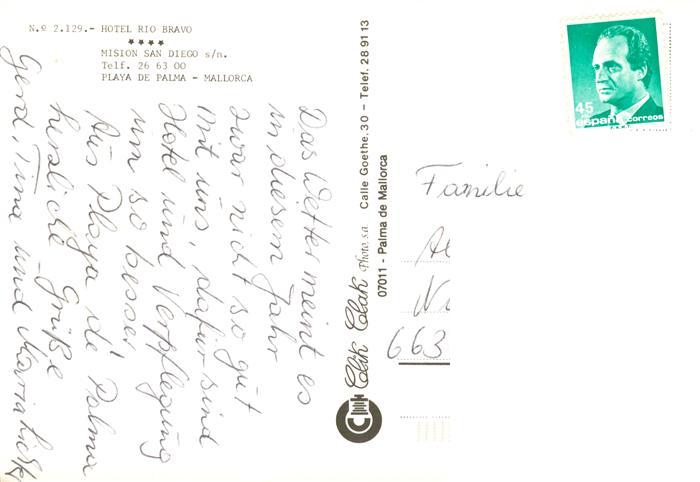 N.º 2.129.- HOTEL RIO BRAVO
★★★★
MISION SAN DIEGO s/n.
Telf. 26 63 00
PLAYA DE PALMA - MALLORCA
Das Wetter meint es
in diesem Jahr
zwar nicht so gut
mit uns, dafür sind
Hotel und Verpflegung
um so besser.
Aus Playa de Palma
herzliche Grüße
Gerd, Tina und Maria
Clik Clak Photo, s.a. Calle Goethe, 30 – Telef. 28 91 13
07011 - Palma de Mallorca
45
españa correos
Familie
663